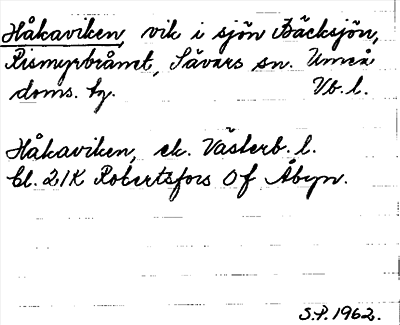 Håkaviken, vik i sjön Bäcksjön,
Rismyrbrånet, Sävars sn. Umeå
doms. hg. Vb. l.
Håkaviken, ek. Västerb. l.
Bl. 21K Robertsfors Of Åbyn.
S.P. 1962.